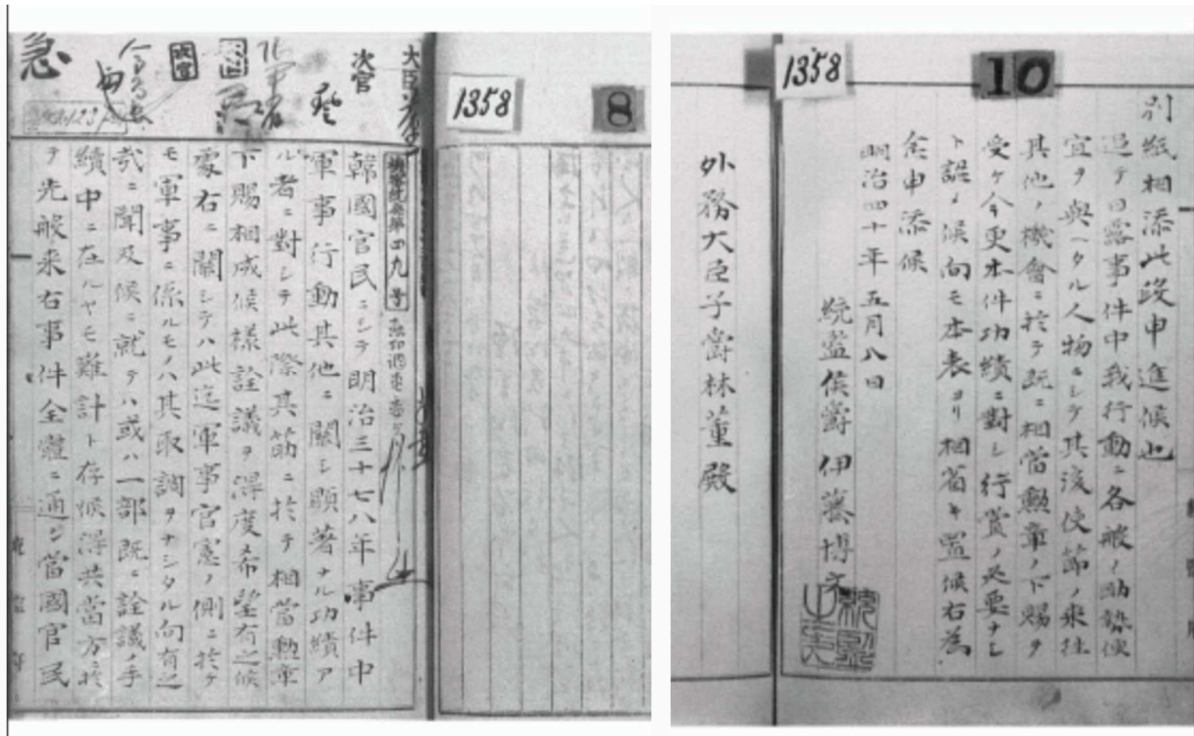 急
大臣
次官
次官
機密統発第四九号
韓國官民ニシテ明治三十七八年事件中
軍事行動其他ニ關シ顕著ナル功績ア
ル者ニ對シテ此際其筋ニ於テ相當勲章
下賜相成候様詮議ヲ得度希望有之候
處右ニ關シテハ此迄軍事官憲ノ側ニ於テ
モ軍事ニ係ルモノハ其取調ヲナシタル向有之
哉ニ聞及候ニ就テハ或ハ一部既ニ詮議ノ手
續中ニ在ルヤモ難計ト存候得共當方ニ於
テ先般来右事件全體ニ通シ當國官民
1358
8
1358
10
別紙相添此段申進候也
追テ日露事件中我行動ニ各般ノ助勢便
宜ヲ與ヘタル人物ニシテ其後使節ノ来往
其他ノ機會ニ於テ既ニ相當勲章ノ下賜ヲ
受ケ今更本件功績ニ對シ行賞ノ必要ナシ
ト認メ候向モ本表ヨリ相省キ置候右為
念申添候
明治四十年五月八日
統監侯爵伊藤博文
外務大臣子爵林董殿